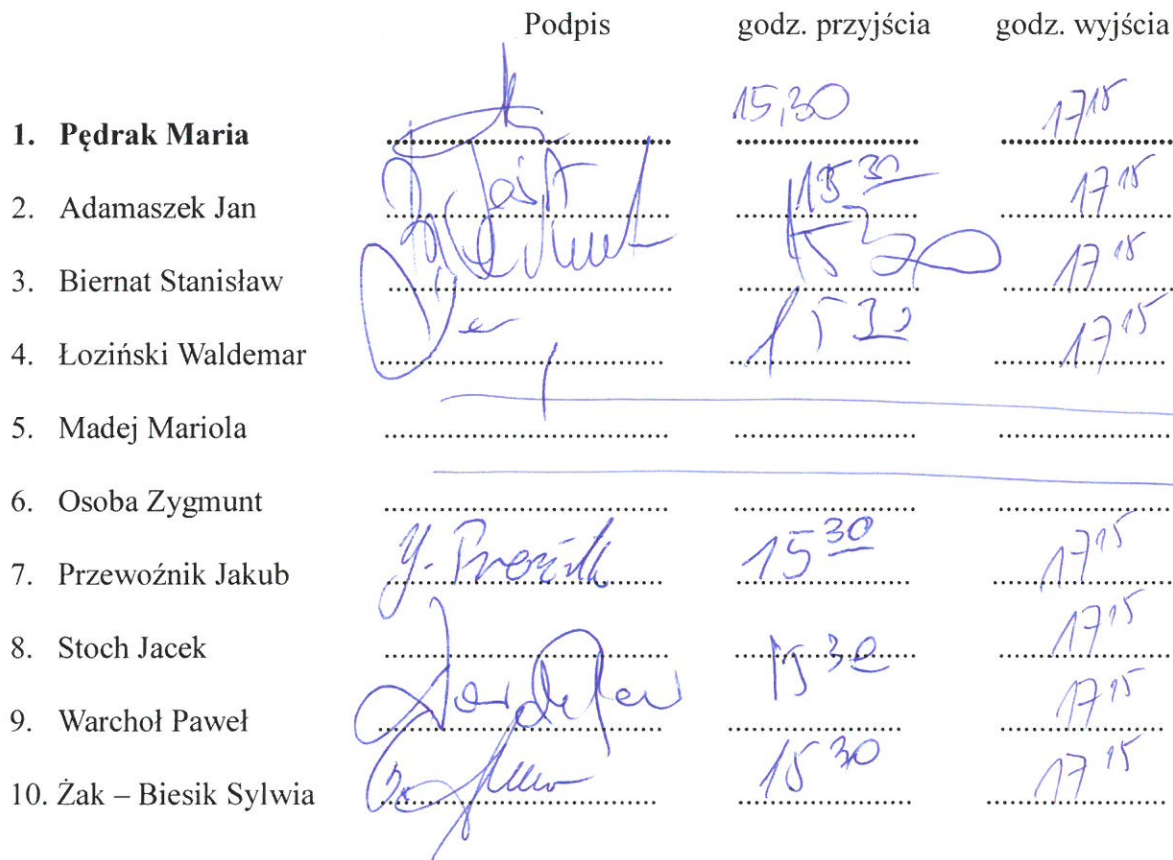 Podpis godz. przyjścia godz. wyjścia
1. Pędrak Maria 15,30 17 15
2. Adamaszek Jan 15 30 17 15
3. Biernat Stanisław 15 30 17 15
4. Łoziński Waldemar 15 30 17 15
5. Madej Mariola
6. Osoba Zygmunt
7. Przewoźnik Jakub 15 30 17 15
8. Stoch Jacek 15 30 17 15
9. Warchoł Paweł 17 15
10. Żak – Biesik Sylwia 15 30 17 15